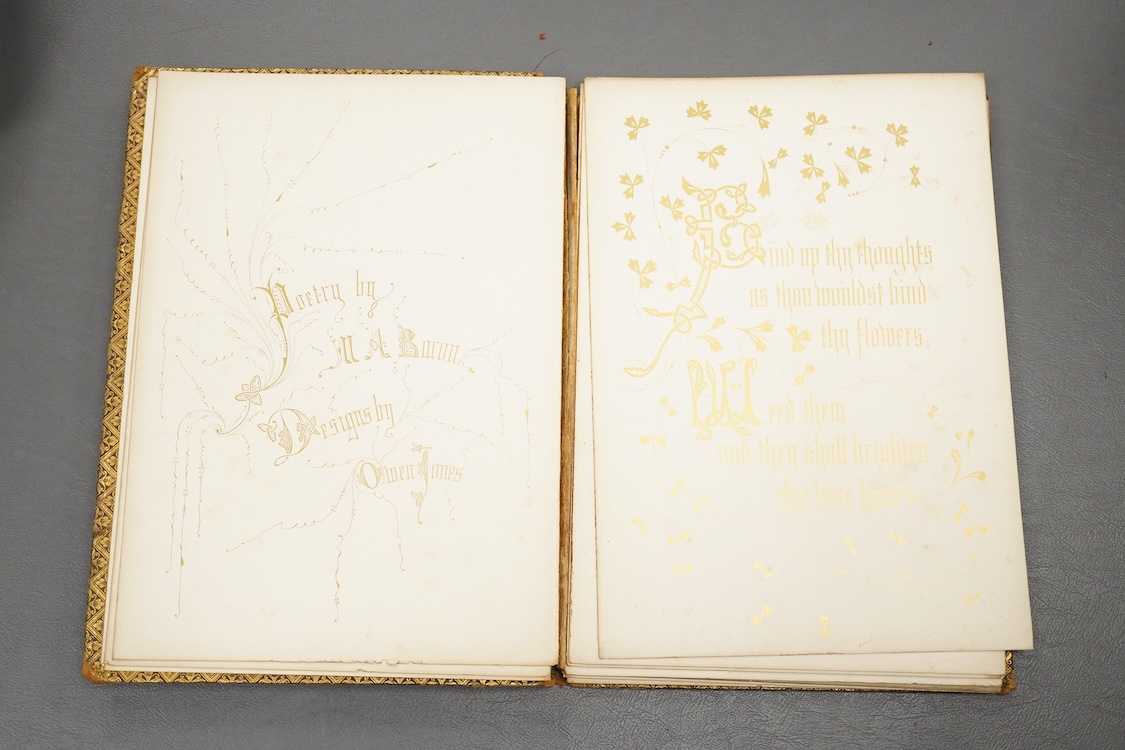 Poetry by
M A Bacon
Designs by
Owen Jones
Bind up thy thoughts
as thou wouldst bind
thy flowers;
Weed them
and they shall brighten